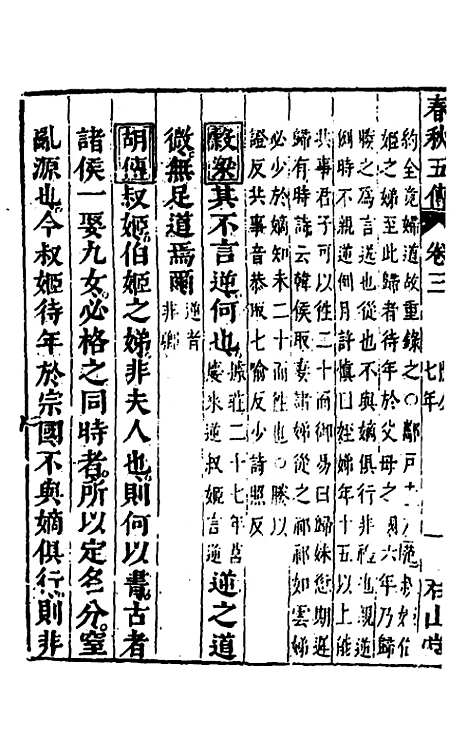 春秋五傳 卷三 七年 一 石山堂
約全竟婦道故重錄之○鄒
姬之娣至此歸者待年於父母之 六年乃歸
媵之爲言送也從也不與嫡俱行非禮也親
倒時不親逆倒月許慎曰姪娣年十五以上能
共事君子可以徃二十而御易曰歸妹愆期遲
歸有時詩云韓侯取妻諸娣從之祁祁如雲娣
必少於嫡知未二十而徃也○媵以
證反共事音恭取七喻反少詩照反
穀梁其不言逆何也據莊二十七年莒慶來逆叔姬言逆逆之道
微無足道焉爾逆者非卿
胡傳叔姬伯姬之娣非夫人也則何以書古者
諸侯一娶九女必格之同時者所以定名分窒
亂源也今叔姬待年於宗國不與嫡俱行則非